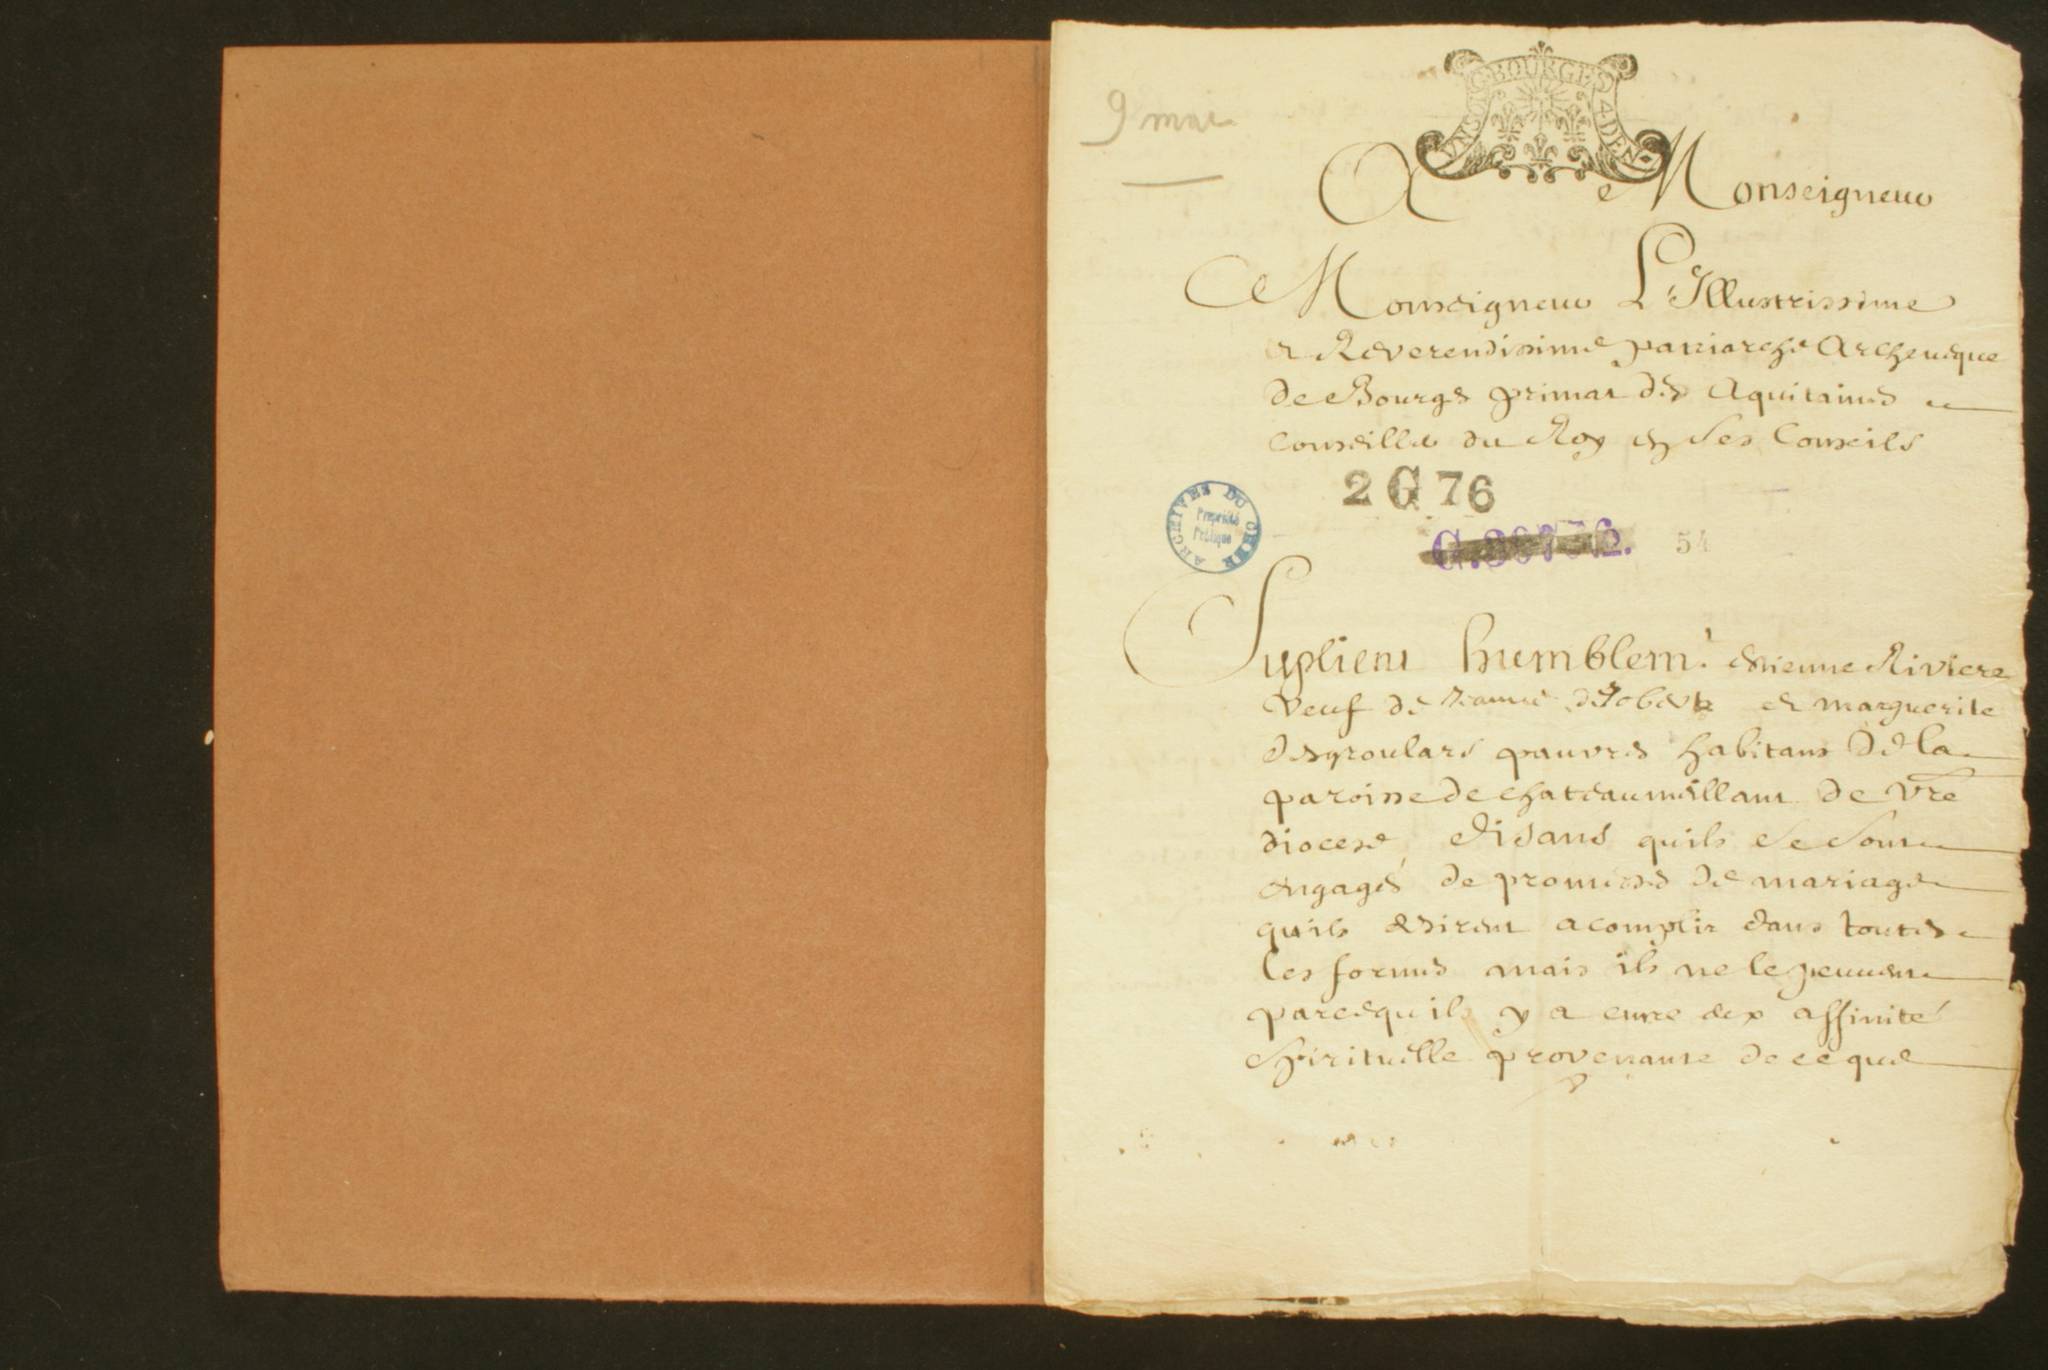 9 mai
BOURGES 4 DEN
A Monseigneur
Monseigneur L'Illustrissime
et Reverendissime patriarche Archeuesque
de Bourges primat des Aquitaines
Conseiller du Roy en Ses Conseils
2 G 76
ARCHIVES DU CHER
Propriété
Publique
54
Suplient humblemt. Estienne Riviere
veuf de Jeanne et marguerite
desgroulars pauvres habitans de la
paroisse de chateaumeillant de vre
diocese, disans quils se sont
engagés de promesses de mariage
quils desirent acomplir dans toutes
les formes mais ils ne le peuuent
parcequil y a entre eux affinité
spirituelle provenante de ce que